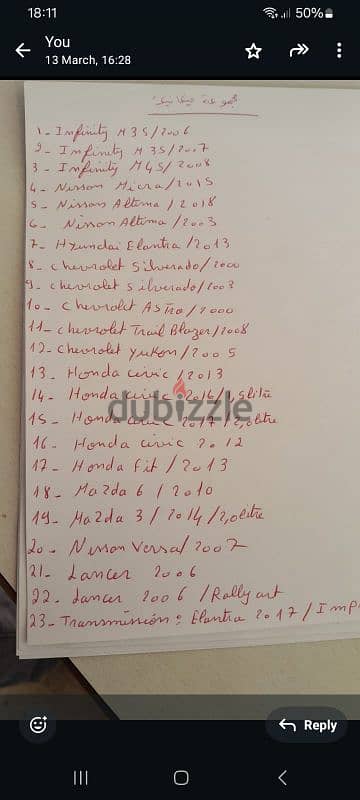 18:11
50%
You
13 March, 16:28
1 - Infinity M35/2006
2 - Infinity M35/2007
3 - Infinity M45/2008
4 - Nissan Micra/2015
5 - Nissan Altima/2018
6 - Nissan Altima/2003
7 - Hyundai Elantra/2013
8 - Chevrolet Silverado/2000
9 - Chevrolet Silverado/2003
10 - Chevrolet Astro/2000
11 - Chevrolet Trail Blazer/2008
12 - Chevrolet Yukon/2005
13. Honda civic/2013
14. Honda civic 2016/1,5litre
15 - Honda civic 2017/2,0litre
16. Honda civic 2012
17 - Honda fit/2013
18 - Mazda 6/2010
19 - Mazda 3/2014/2,0litre
20 - Nissan Versa/2007
21 - Lancer 2006
22. Lancer 2006/Rally art
23 - Transmission: Elantra 2017/Imp
dubizzle
Reply